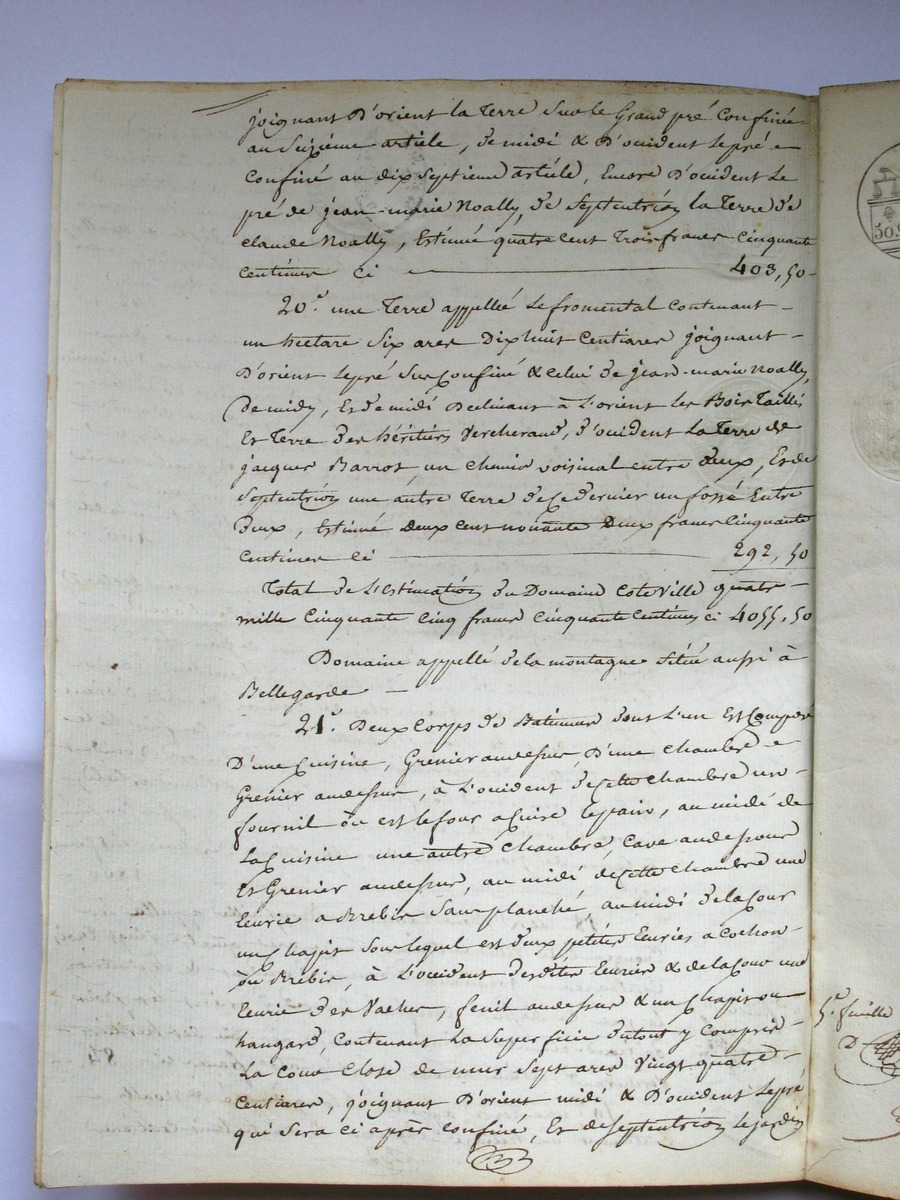 joignant D'orient la Terre Sur le Grand pré Confinée
au Seizième article, de midi & D'occident le pré
Confiné au dix Septieme article, Encore D'occident Le
pré de jean-marie Noally, de Septentrion la Terre de
Claude Noally, Estimée quatre cent Trois francs Cinquante
Centimes ci 403,50
20e. une Terre appellée Le fromental Contenant
un hectare Six ares Dixhuit Centiares joignant
D'orient le pré Sus Confiné & celui de jean-marie Noally,
De midy, Et de midi Declinant à L'orient les Bois Taillis
Et Terre des héritiers Vercherand, d'occident La Terre de
jacques Barrot, un chemin voisinal entre deux, Et de
Septentrion une autre Terre de ce dernier un fossé Entre
Deux, Estimée Deux cent nonante Deux francs Cinquante
Centimes Ci 292,50
Total de L'Estimation du Domaine Coteville quatre
mille Cinquante Cinq francs Cinquante Centimes ci 4055,50
Domaine appellé de la montagne Situé aussi à
Bellegarde
21e. Deux Corps de Batimens dont L'un Est Composé
D'une Cuisine, Grenier audessus, D'une Chambre
Grenier audessus, à L'occident de cette Chambre un
fournil où est le four a Cuire le pain, au midi de
La Cuisine une autre Chambre, Cave audessous
Et Grenier audessus, au midi de cette Chambre une
Ecurie a Brebis Sans planché, au midi de la Cour
un Chapit Sous lequel est deux petites Ecuries a Cochon
ou Brebis, à L'occident desdites Ecuries & de la Cour une
Ecurie des Vaches, fenil audessus & un Chapit ou
hangard, Contenant La Superficie du tout y Compris
La Cour Close de murs Sept ares Vingt quatre
Centiares, joignant D'orient midi & D'occident Le pré
qui Sera ci après Confiné, Et de Septentrion le jardin
50.
5e. feuille
D